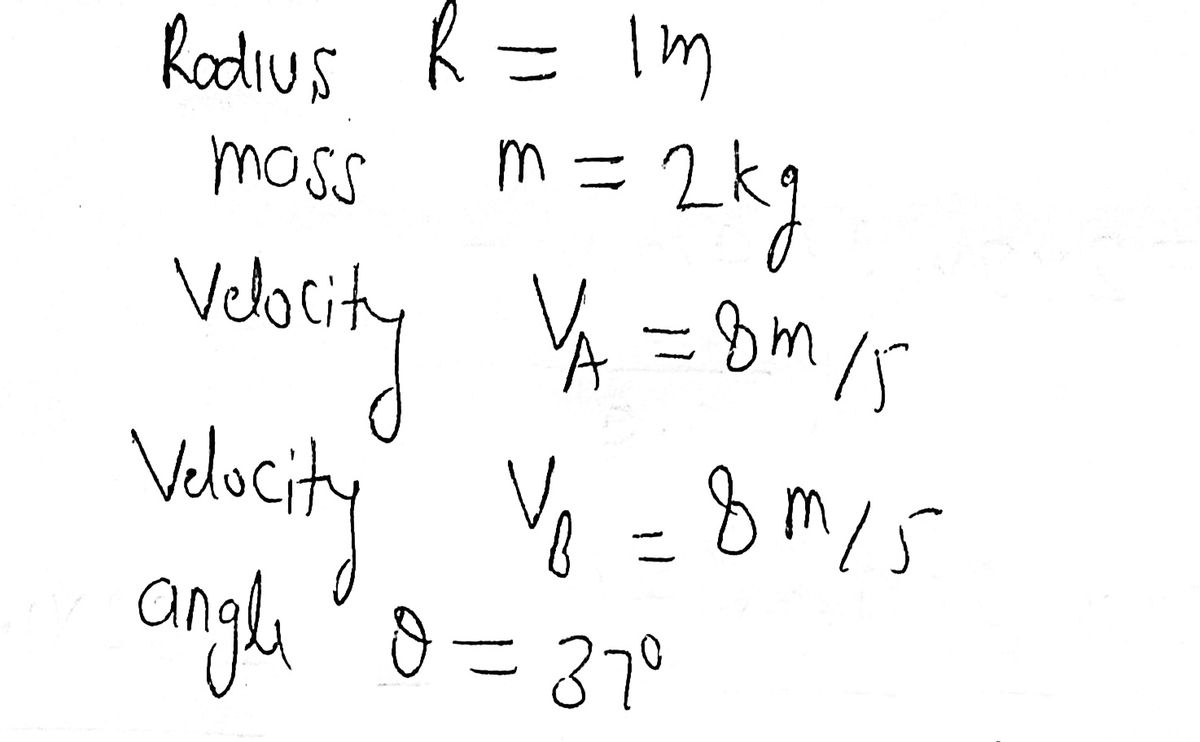 Radius R = 1m
mass m = 2kg
Velocity VA = 8m/s
Velocity VB = 8m/s
angle θ = 37°